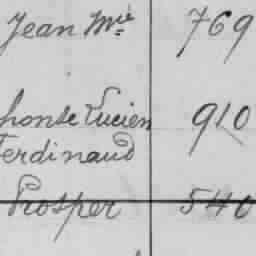 Jean Mie 769
phonse Lucien 910
Ferdinand
Prosper 540